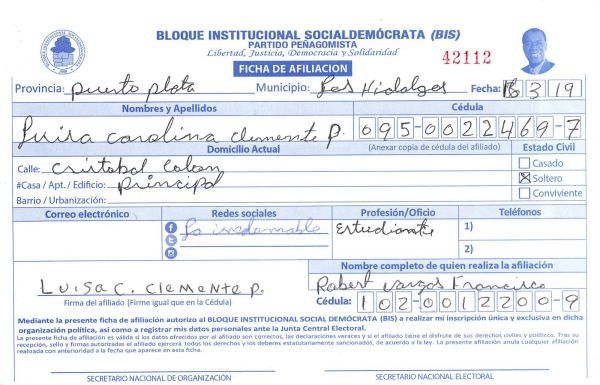 BLOQUE INSTITUCIONAL SOCIALDEMÓCRATA (BIS)
PARTIDO PEÑAGOMISTA
Libertad, Justicia, Democracia y Solidaridad
42112
FICHA DE AFILIACION
Provincia: Puerto plata Municipio: Los Hidalgos Fecha: 16 3 19
Nombres y Apellidos Cédula
Luisa carolina clemente P. 095-0022469-7
Domicilio Actual (Anexar copia de cédula del afiliado) Estado Civil
Calle: Cristobal Colon Casado
#Casa / Apt. / Edificio: principal Soltero
Barrio / Urbanización: Conviviente
Correo electrónico Redes sociales Profesión/Oficio Teléfonos
La indomable Estudiante 1)
2)
Nombre completo de quien realiza la afiliación
Luisa C. Clemente p. Robert Vargas Francisco
Firma del afiliado (Firme igual que en la Cédula) Cédula: 102-0012200-9
Mediante la presente ficha de afiliación autorizo al BLOQUE INSTITUCIONAL SOCIAL DEMÓCRATA (BIS) a realizar mi inscripción única y exclusiva en dicha
organización política, así como a registrar mis datos personales ante la Junta Central Electoral.
La presente ficha de afiliación es válida si los datos ofrecidos por el afiliado son correctos, las declaraciones veraces y si el afiliado tiene el disfrute de sus derechos civiles y políticos. Tras su
recepción, sello y firmas autorizadas el afiliado ejercerá todos los derechos y los deberes estatutariamente sancionados, de acuerdo a la ley. La presente afiliación anula cualquier afiliación
realizada con anterioridad a la fecha que aparece en esta ficha.
SECRETARIO NACIONAL DE ORGANIZACIÓN SECRETARIO NACIONAL ELECTORAL